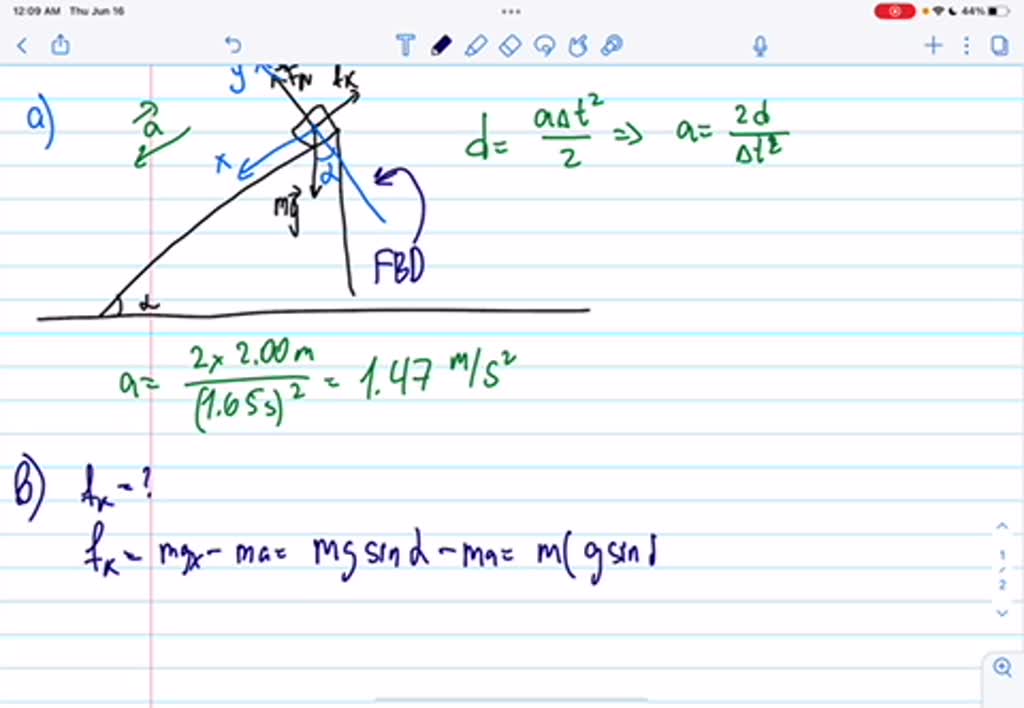 12:09 AM Thu Jun 16
44%
a)
y
FN
fk
a
x
α
mg
FBD
d = aΔt²/2 => a = 2d/Δt²
α
a = 2 x 2.00 m/(1.65 s)² = 1.47 m/s²
B) fk = ?
fk = mgx - ma = mg sin α - ma = m( g sin
1
/
2